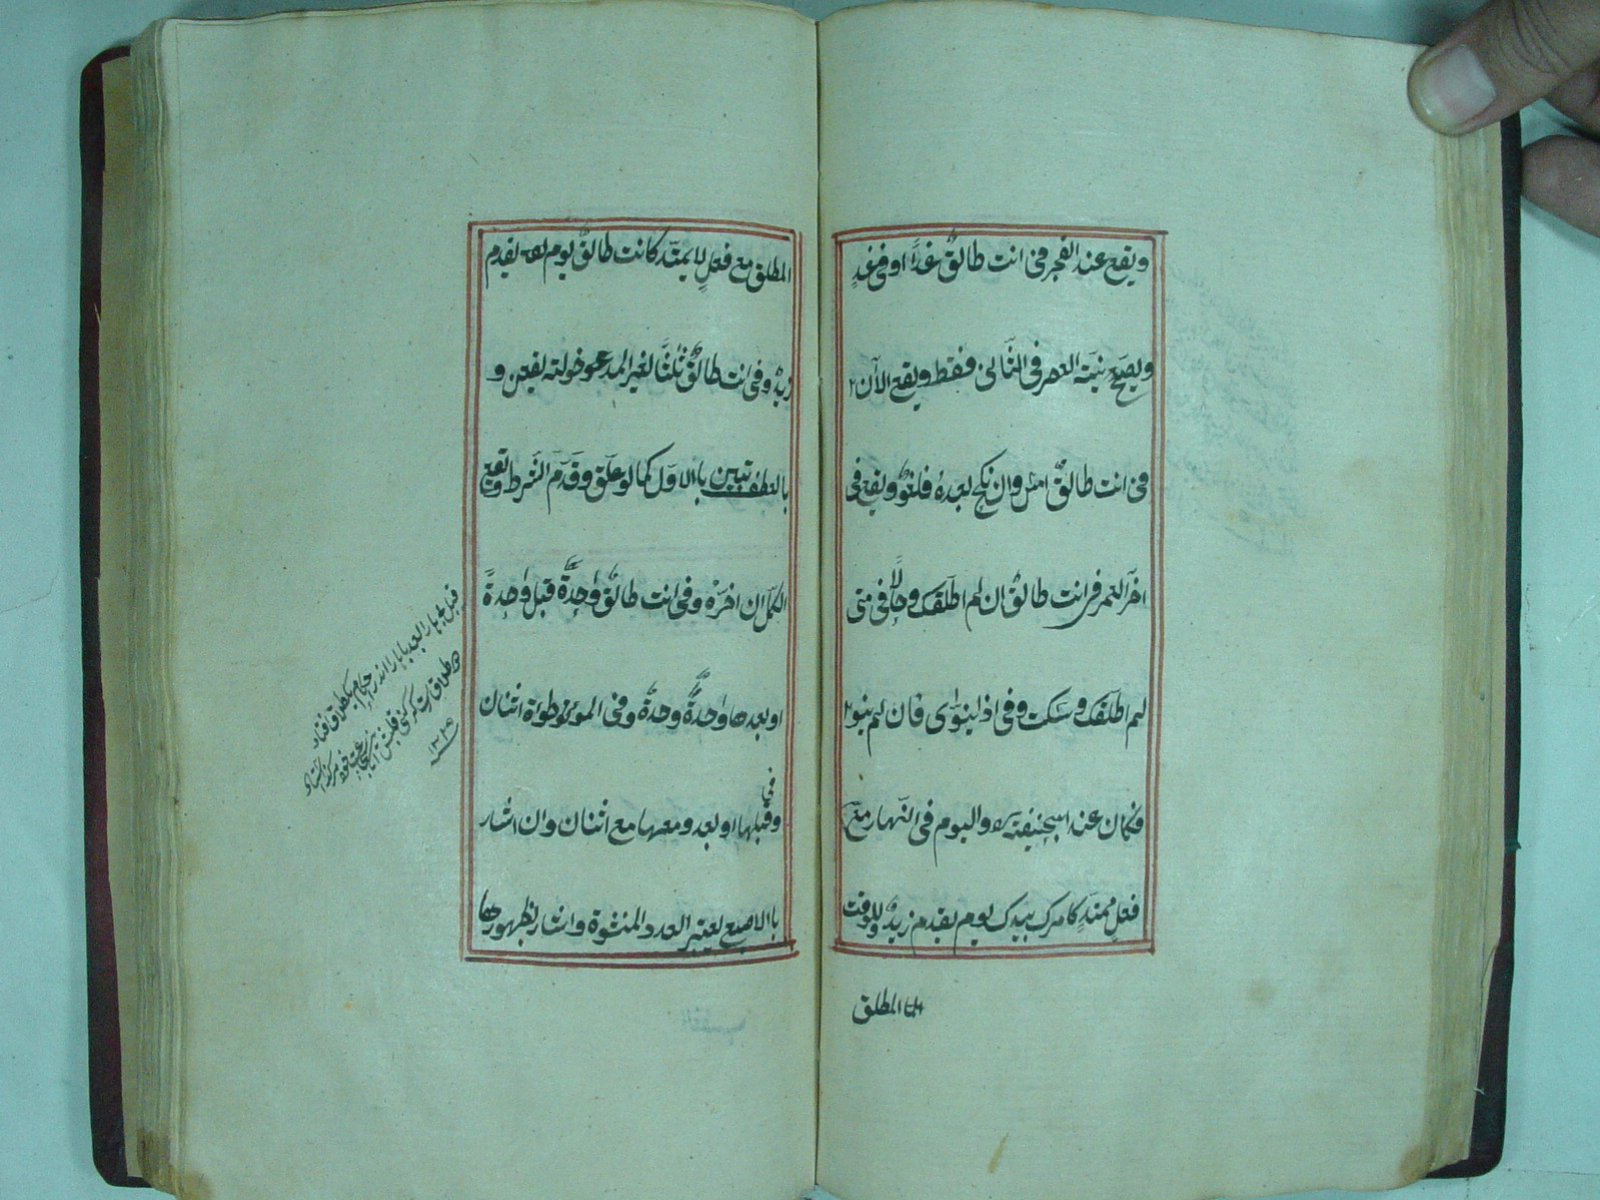 ويقع عند الفجر فى انت طالقٌ غدًا او فى غدٍ
ويصحّ نيّة العصر فى الثّانى فقط ويقع الآن
فى انت طالقٌ امس وان نكح بعدهٗ فلغوٌ ويقع فى
اخر العمر فى انت طالقٌ ان لم اطلّقك وحالًا فى متى
لم اطلّقك وسكت وفى اذا ينوى فان لم ينو
فكان عند ابيحنيفة واليوم فى النّهار مع
فعلٍ ممتدٍ كامرك بيدك يوم يقدم زيدٌ وللوقت
المطلق
المطلق مع فعلٍ لا يمتدّ كانت طالقٌ يوم يقدم
زيدٌ وفى انت طالقٌ ثلٰثًا لغير المدعو خولته يقعن و
بالعطف تبين باالاوّل كما لو علّق وقدّم الشّرط وتقع
الكل ان اخّرهٗ وفى انت طالقٌ واحدةً قبل واحدةً
او بعدها واحدةٌ وحدةٌ وفى الموطوٴة اثنان
وقبلها او بعد ومعها مع اثنان وان اشار
باالاصبع يعتبر العدد المنشوة واشار بظهورها